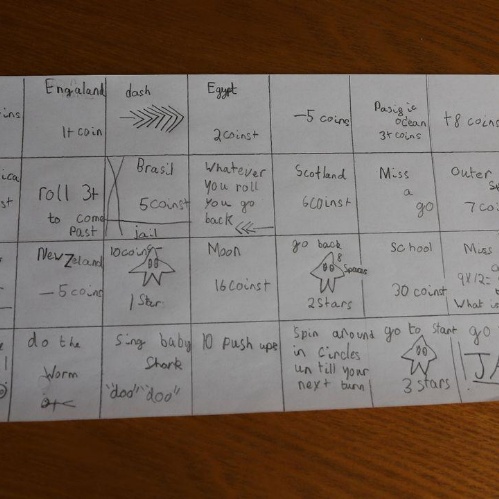 ins
Engaland
1+ coin
dash
Egypt
2 coins+
-5 coins
Pasific
ocean
3+ coins
+8 coins
ica
st
roll 3+
to come
Past
Brasil
5 coins+
jail
Whatever
you roll
you go
back
Scotland
6 coins+
Miss
a
go
Outer
7 co
New Zeland
-5 coins
10 coins+
1 Star
Moon
16 coins+
go back
8
Spaces
2 stars
School
30 coins+
Miss
What is
do the
Worm
Sing baby
Shark
"doo" "doo"
10 push ups
Spin around
in Circles
un till your
next turn
go to start
3 stars
go
JA